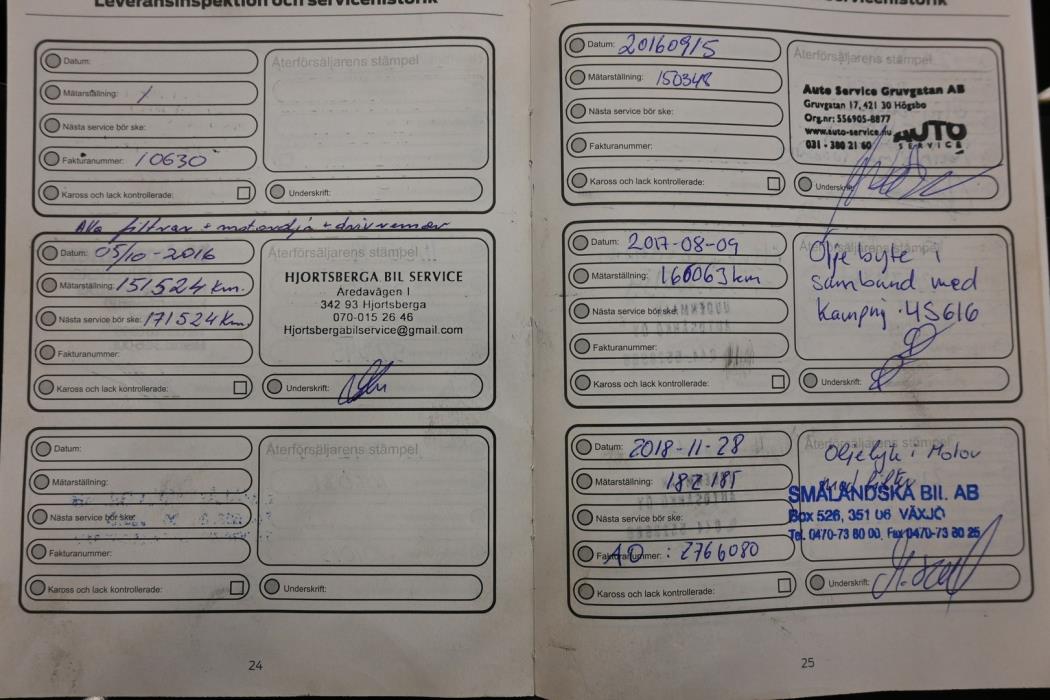 Leveransinspektion och servicehistorik
Datum:
Mätarställning: /
Nästa service bör ske:
Fakturanummer: 10630
Kaross och lack kontrollerade:
Återförsäljarens stämpel
Underskrift:
Alla filtrar + motorolja + drivremmar
Datum: 05/10-2016
Mätarställning: 151524 km.
Nästa service bör ske: 171524 km.
Fakturanummer:
Kaross och lack kontrollerade:
Återförsäljarens stämpel
HJORTSBERGA BIL SERVICE
Äredavägen 1
342 93 Hjortsberga
070-015 26 46
Hjortsbergabilservice@gmail.com
Underskrift:
Datum:
Mätarställning:
Nästa service bör ske:
Fakturanummer:
Kaross och lack kontrollerade:
Återförsäljarens stämpel
Underskrift:
24
servicehistorik
Datum: 20160915
Mätarställning: 150348
Nästa service bör ske:
Fakturanummer:
Kaross och lack kontrollerade:
Återförsäljarens stämpel
Auto Service Gruvgatan AB
Gruvgatan 17, 421 30 Högsbo
Org.nr: 556905-8877
www.auto-service.nu
031 - 380 21 60
AUTO
SERVICE
Underskrift:
Datum: 2017-08-09
Mätarställning: 166063 km
Nästa service bör ske:
Fakturanummer:
Kaross och lack kontrollerade:
Återförsäljarens stämpel
Olje byte i
samband med
kampnj. 45616
Underskrift:
Datum: 2018-11-28
Mätarställning: 182 185
Nästa service bör ske:
Fakturanummer: AO : 2766080
Kaross och lack kontrollerade:
Återförsäljarens stämpel
Oljebyte i Motor
med filter
SMÅLÄNDSKA BIL AB
Box 526, 351 06 VÄXJÖ
Tel. 0470-73 80 00, Fax 0470-73 80 25
Underskrift:
25